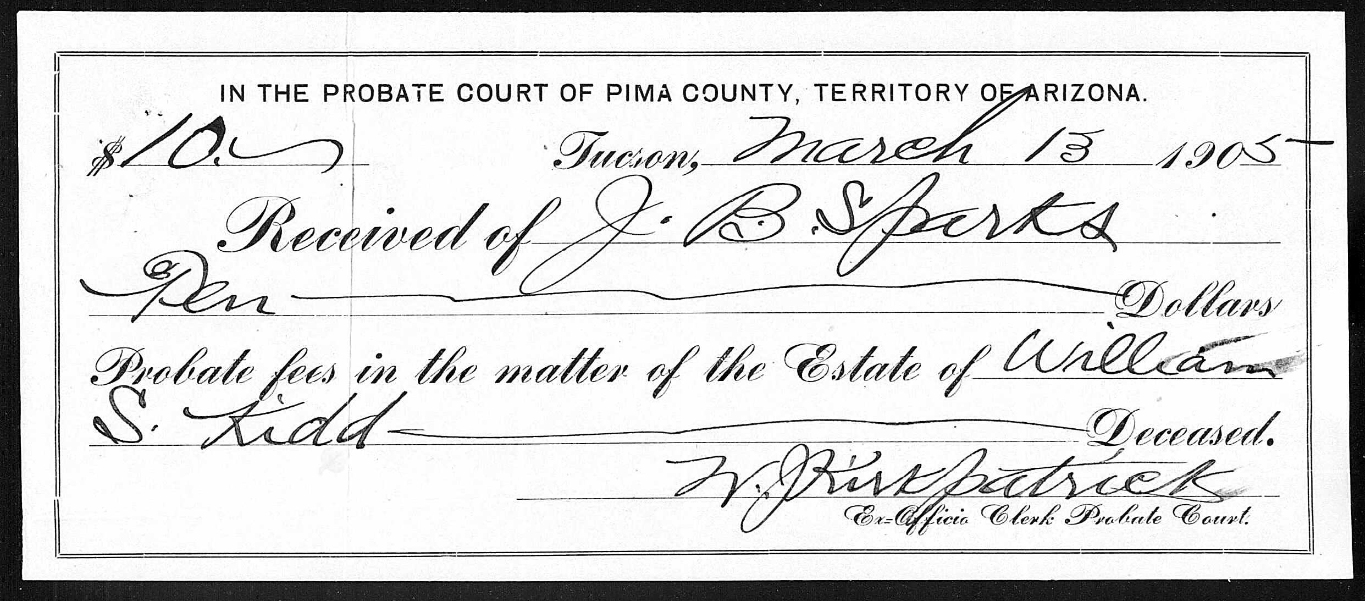 IN THE PROBATE COURT OF PIMA COUNTY, TERRITORY OF ARIZONA.
$10. Tucson, March 13 1905
Received of J. B. Sparks
Ten Dollars
Probate fees in the matter of the Estate of William
S. Kidd Deceased.
W. J. Kirkpatrick
Ex-Officio Clerk Probate Court.